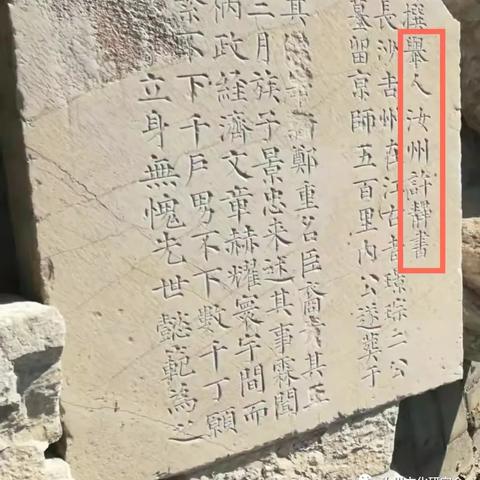 撰舉人汝州許靜書
長沙吉州在江右昔琮琮二公
墓留京師五百里內公遂葬于
其 鄭重名臣裔 其正
二月族子景忠來述其事霖聞
炳政經濟文章赫耀寰宇間而
系不下千戶男不下數千丁願
立身無愧先世懿範為之